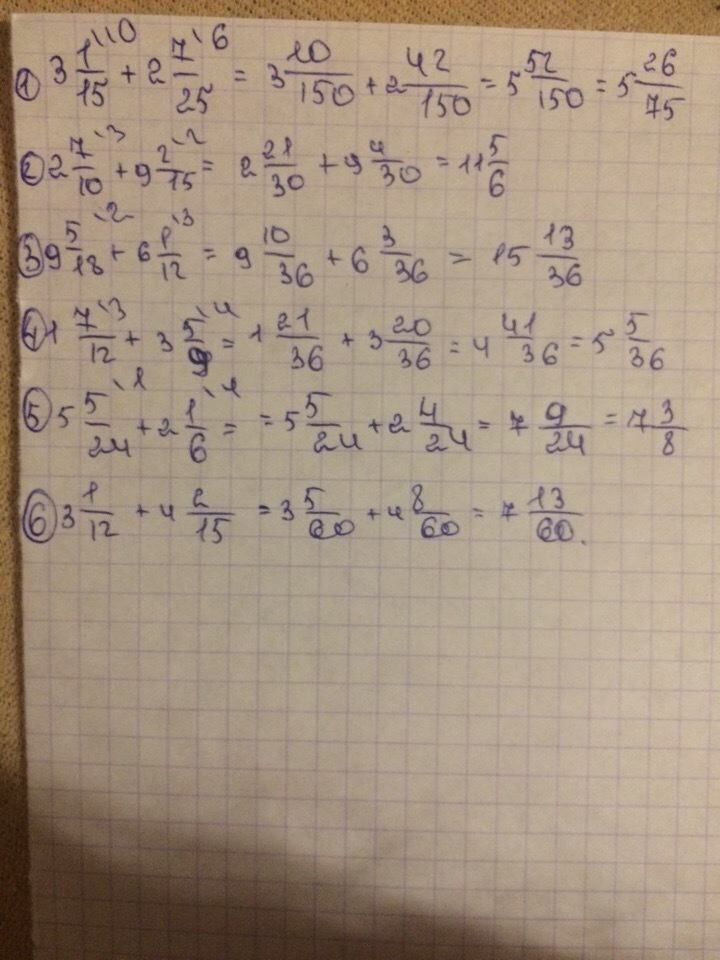 ① 3 1/15 \10 + 2 7/25 \6 = 3 10/150 + 2 42/150 = 5 52/150 = 5 26/75
② 2 7/10 \3 + 9 2/15 \2 = 2 21/30 + 9 4/30 = 11 5/6
③ 9 5/18 \2 + 6 1/12 \3 = 9 10/36 + 6 3/36 = 15 13/36
④ 1 7/12 \3 + 3 5/9 \4 = 1 21/36 + 3 20/36 = 4 41/36 = 5 5/36
⑤ 5 5/24 \1 + 2 1/6 \4 = = 5 5/24 + 2 4/24 = 7 9/24 = 7 3/8
⑥ 3 1/12 + 4 2/15 = 3 5/60 + 4 8/60 = 7 13/60.